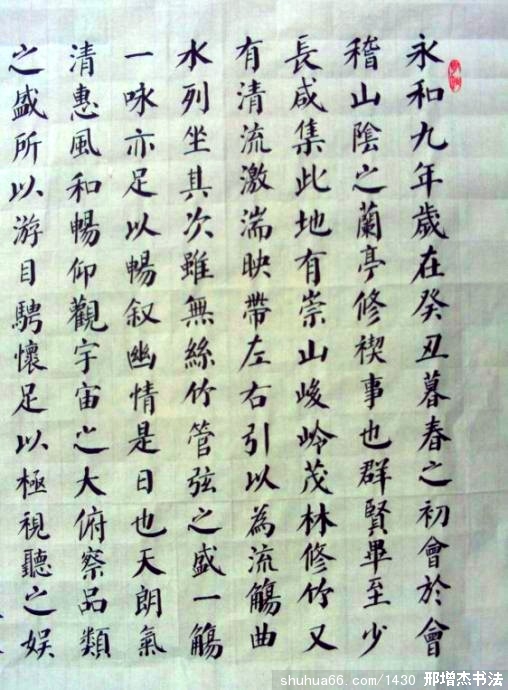 永和九年歲在癸丑暮春之初會於會
稽山陰之蘭亭修禊事也群賢畢至少
長咸集此地有崇山峻岭茂林修竹又
有清流激湍映帶左右引以為流觴曲
水列坐其次雖無絲竹管弦之盛一觴
一咏亦足以暢叙幽情是日也天朗氣
清惠風和暢仰觀宇宙之大俯察品類
之盛所以游目騁懷足以極視聽之娱
shuhua66.com/1430 邢增杰书法